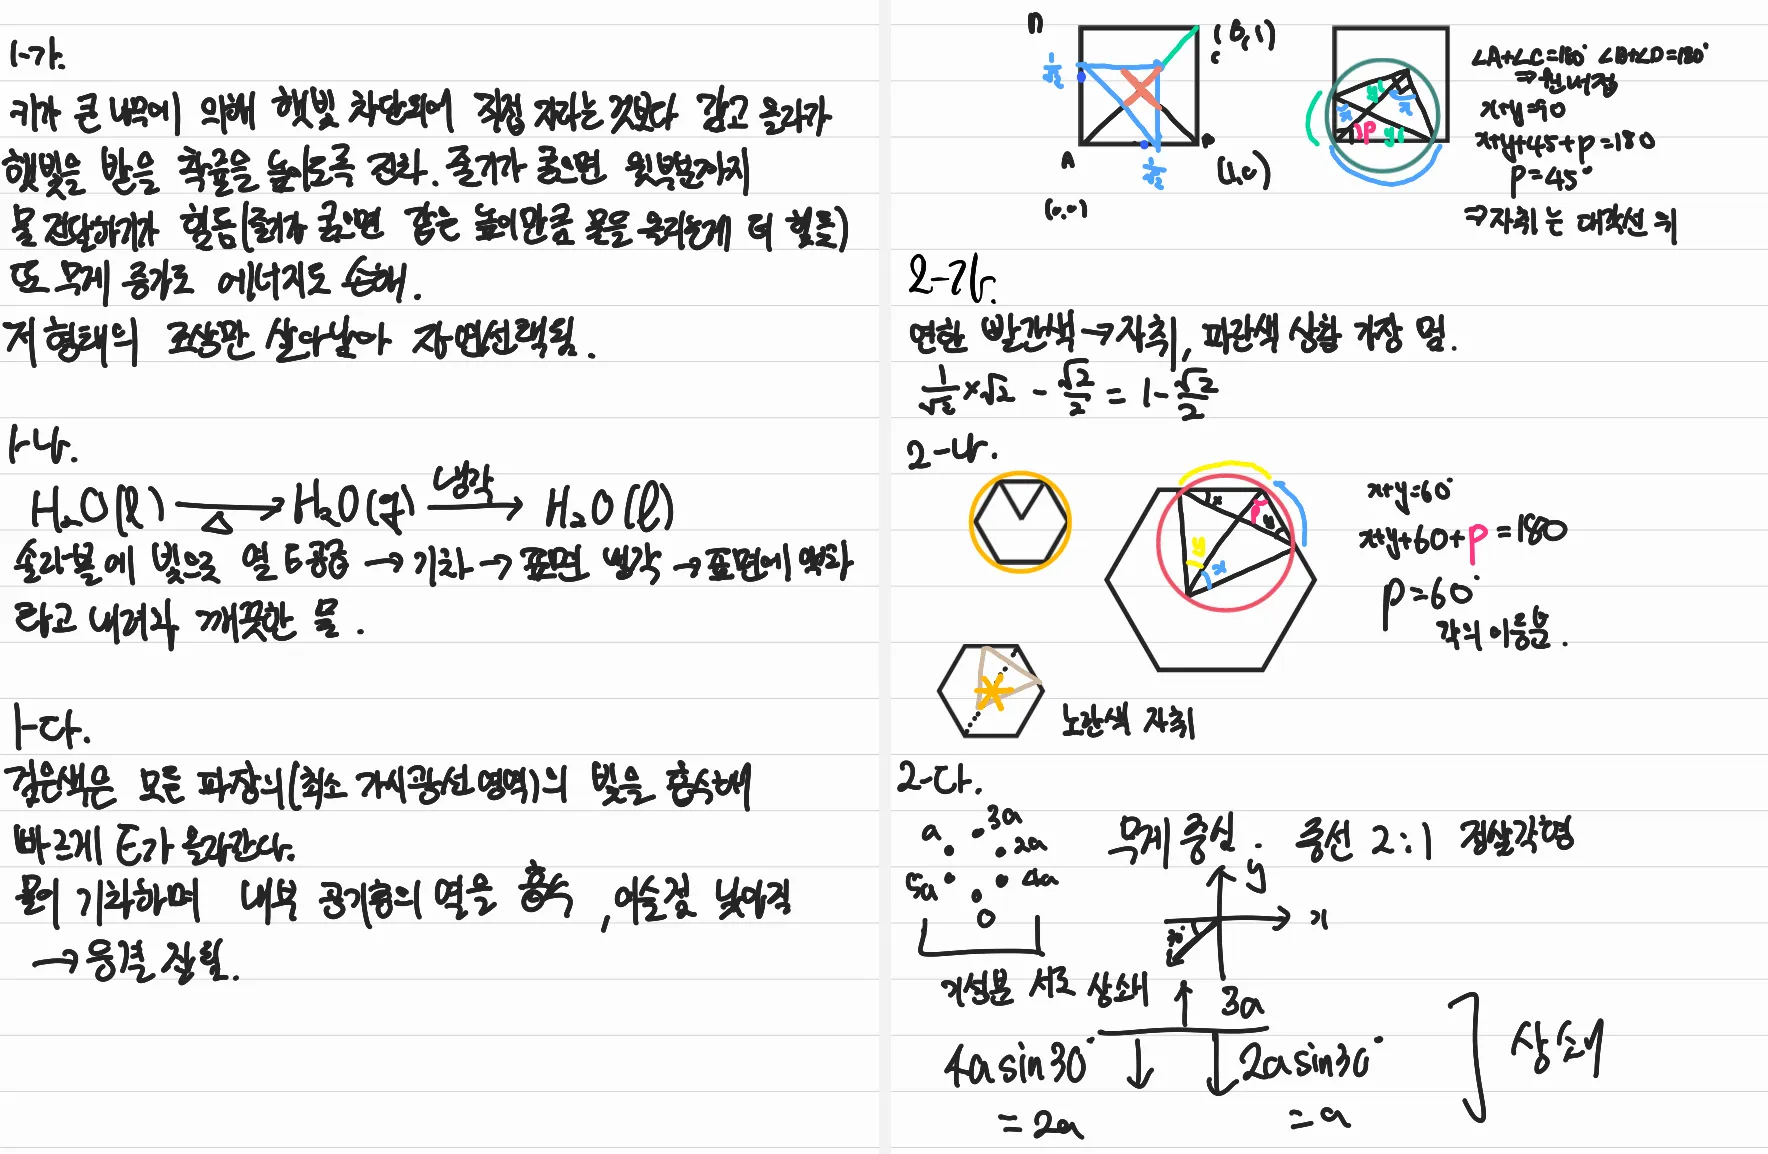 1-가.
키가 큰 나무에 의해 햇빛 차단되어 직접 자라는 것보다 감고 올라가
햇빛을 받을 확률을 높이도록 진화. 줄기가 굵으면 윗부분까지
물 전달하기가 힘듦(줄기가 굵으면 같은 높이만큼 물을 올리는게 더 힘듦)
또 무게 증가로 에너지도 손해.
저 형태의 조상만 살아남아 자연선택됨.
1-나.
H₂O(l) → H₂O(g) → H₂O(l)
△
냉각
솔라볼에 빛으로 열 E공급 → 기화 → 표면 냉각 → 표면에 액화
타고 내려와 깨끗한 물.
1-다.
검은색은 모든 파장의(최소 가시광선 영역)의 빛을 흡수해
빠르게 E가 올라간다.
물이 기화하며 내부 공기중의 열을 흡수, 이슬점 낮아짐
→ 응결 잘됨.
D
(1,1)
C
1/√2
A
B
1/√2
(1,0)
(0,0)
∠A+∠C=180° ∠B+∠D=180°
⇒원 내접
x+y=90
x+y+45+p=180
p=45°
⇒자취는 대각선 위
x
y
x
p
y
2-가.
연한 빨간색→자취, 파란색 상황 가장 멈.
1/√2×√2 - √2/2 = 1-√2/2
2-나.
x
p
y
y
x
x+y=60°
x+y+60+p=180
p=60°
각의 이등분.
노란색 자취
2-다.
a
3a
2a
5a
4a
0
무게 중심: 중선 2:1 정삼각형
y
x
30°
가성분 서로 상쇄
↑ 3a
4a sin30° ↓
↓ 2a sin30°
=2a
=a
상쇄